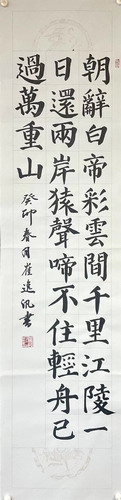 朝辭白帝彩雲間千里江陵一
日還兩岸猿聲啼不住輕舟已
過萬重山
癸卯春月崔進汎書